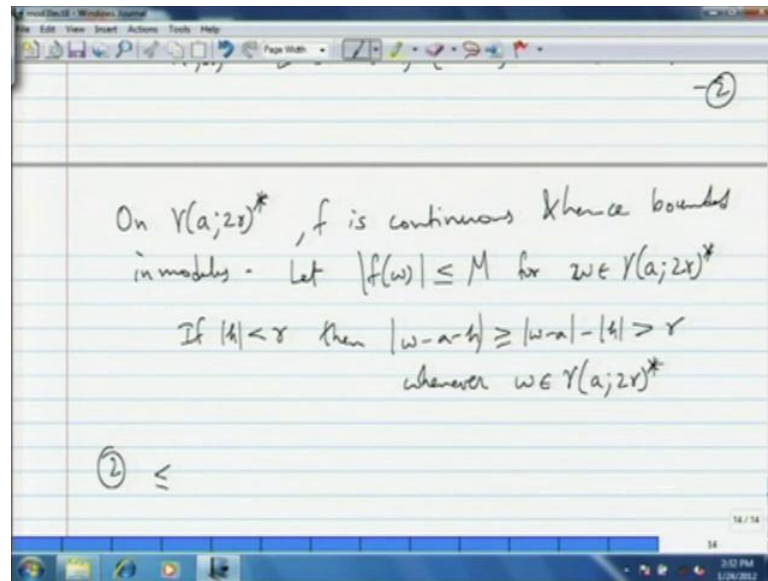 mod3lect8 - Windows Journal
File Edit View Insert Actions Tools Help
Page Width
-②
On γ(a;2r)*, f is continuous & hence bounded
in modulus. Let |f(w)| ≤ M for w ∈ γ(a;2r)*
If |h| < r then |w-a-h| ≥ |w-a|-|h| > r
whenever w ∈ γ(a;2r)*
② ≤
14 / 14
14
2:52 PM
1/24/2012